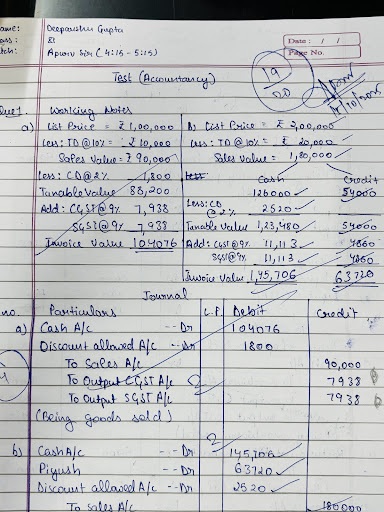 Name: Deepanshu Gupta
Class: XI
Batch: Apurv Sir (4:15 - 5:15)
Date: / /
Page No.
Test (Accountancy)
19
20
Que 1. Working Notes
a) List Price = ₹ 1,00,000
Less: TD @ 10% = ₹ 10,000
Sales Value = ₹ 90,000
Less: CD @ 2% 1,800
Taxable Value 88,200
Add: CGST @ 9% 7,938
SGST @ 9% 7,938
Invoice Value 104076
b) List Price = ₹ 2,00,000
Less: TD @ 10% = ₹ 20,000
Sales value = 1,80,000
Cash Credit
126000 54000
Less: CD @ 2% 2520
Taxable Value 1,23,480 54000
Add: CGST @ 9% 11,113 4860
SGST @ 9% 11,113 4860
Invoice Value 1,45,706 63720
Journal
no. Particulars L.F. Debit Credit
a) Cash A/c --- Dr 104076
Discount allowed A/c --- Dr 1800
To Sales A/c 90,000
To Output CGST A/c 7938
To Output SGST A/c 7938
(Being goods sold)
2
2
b) Cash A/c --- Dr 145,706
Piyush --- Dr 63720
Discount allowed A/c --- Dr 2520
To Sales A/c 180000